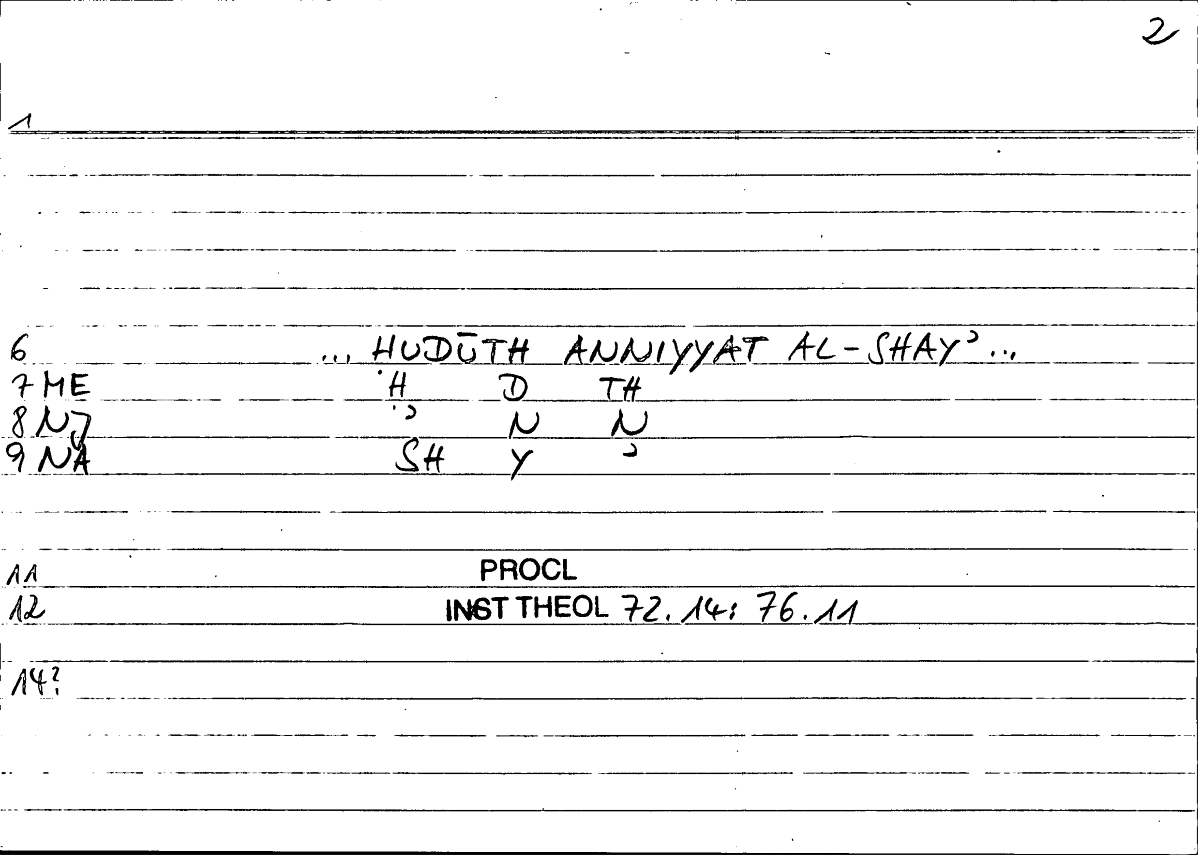 2
1
6 ... ḤUDŪTH ANNIYYAT AL-SHAYʾ ...
7 ME Ḥ D TH
8 NJ ʾ N N
9 NA SH Y ʾ
11 PROCL
12 INST THEOL 72.14: 76.11
14?